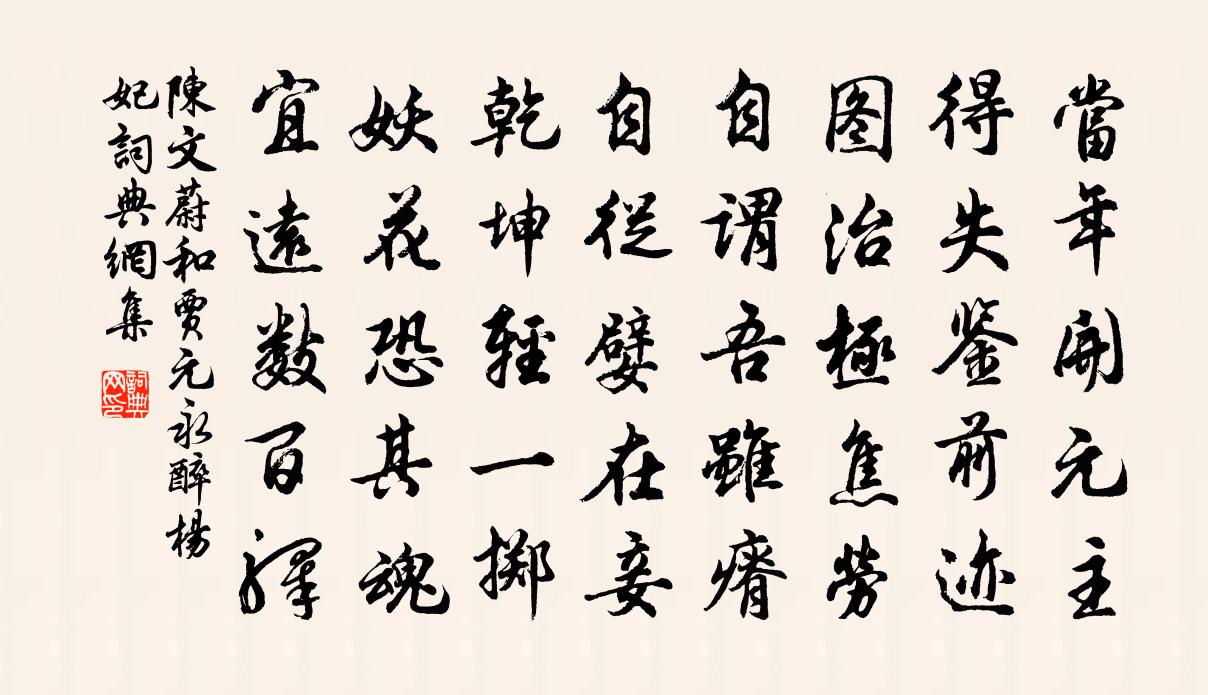 當年開元主
得失鉴前迹
图治極焦勞
自谓吾雖瘠
自從嬖在妾
乾坤輕一掷
妖花恐其魂
宜遠数百驛
陳文蔚和贾元永醉楊
妃詞典網集
詞典网印